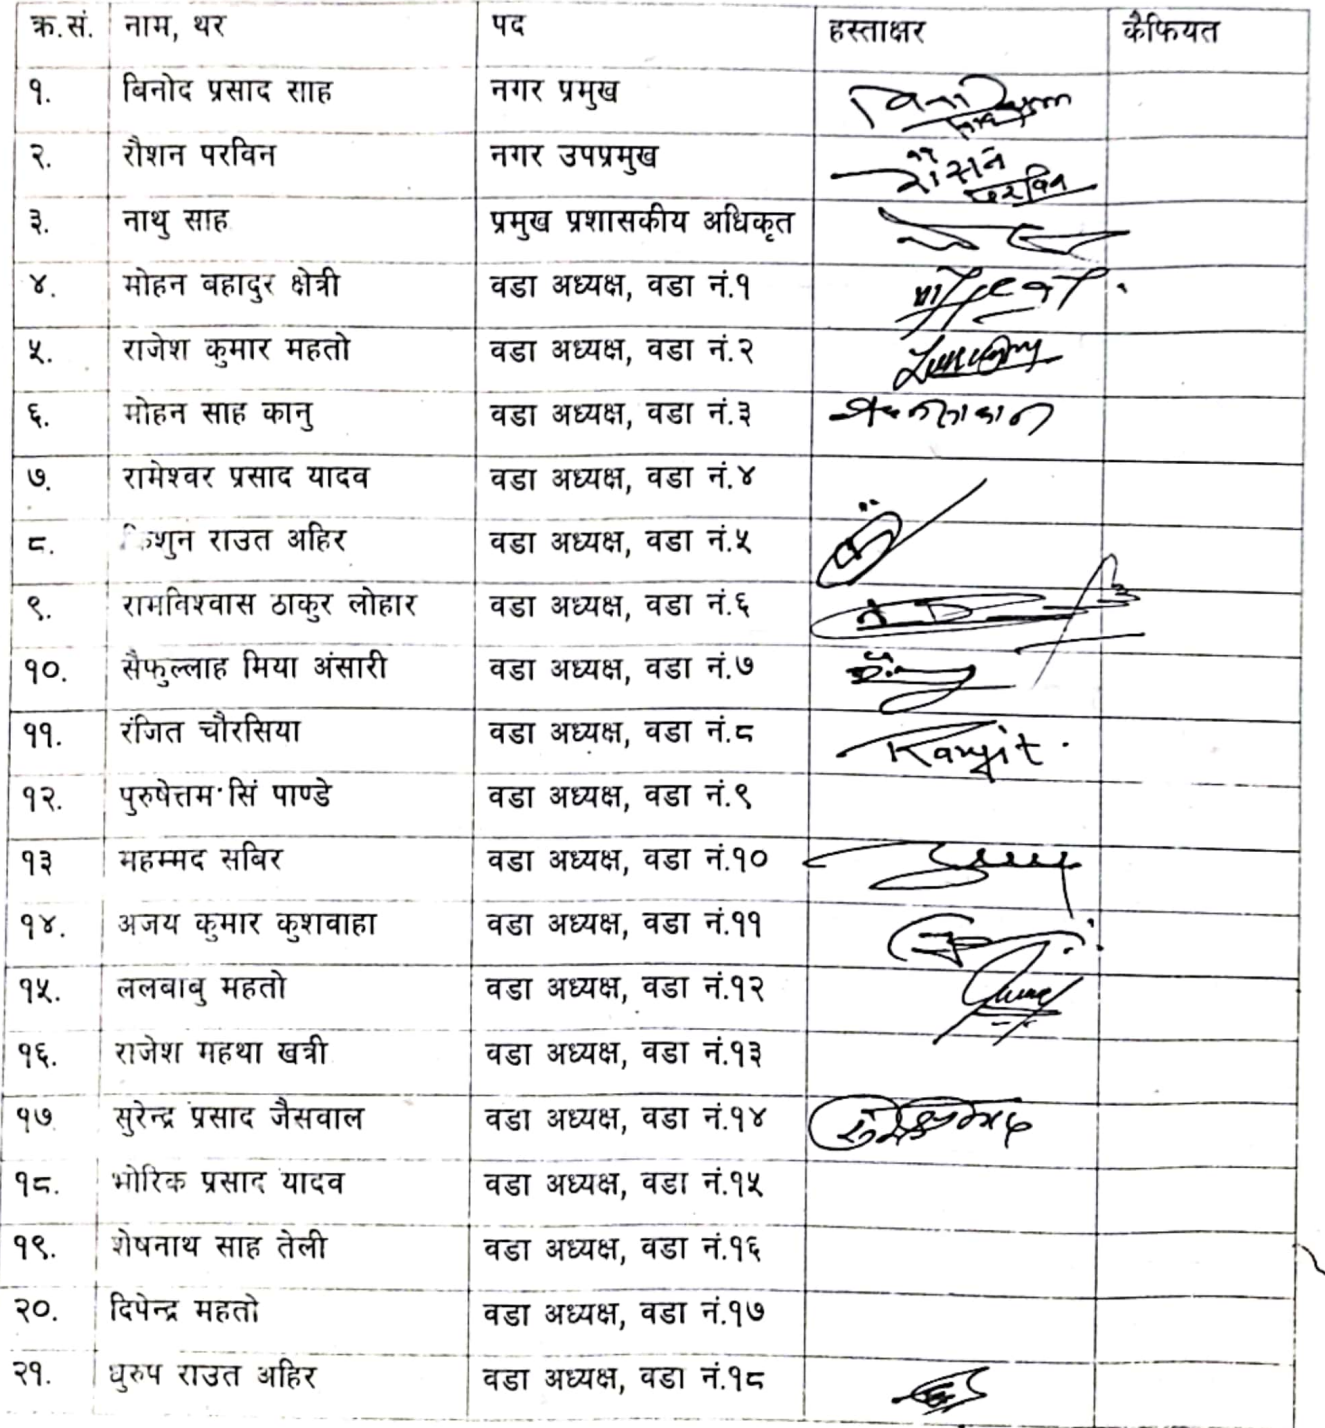 क्र.सं. नाम, थर पद हस्ताक्षर कैफियत
१. बिनोद प्रसाद साह नगर प्रमुख
२. रौशन परविन नगर उपप्रमुख रौसन परविन
३. नाथु साह प्रमुख प्रशासकीय अधिकृत
४. मोहन बहादुर क्षेत्री वडा अध्यक्ष, वडा नं.१
५. राजेश कुमार महतो वडा अध्यक्ष, वडा नं.२
६. मोहन साह कानु वडा अध्यक्ष, वडा नं.३
७. रामेश्वर प्रसाद यादव वडा अध्यक्ष, वडा नं.४
८. किशुन राउत अहिर वडा अध्यक्ष, वडा नं.५
९. रामविश्वास ठाकुर लोहार वडा अध्यक्ष, वडा नं.६
१०. सैफुल्लाह मिया अंसारी वडा अध्यक्ष, वडा नं.७
११. रंजित चौरसिया वडा अध्यक्ष, वडा नं.८ Ranjit.
१२. पुरुषेत्तम सिं पाण्डे वडा अध्यक्ष, वडा नं.९
१३ महम्मद सबिर वडा अध्यक्ष, वडा नं.१०
१४. अजय कुमार कुशवाहा वडा अध्यक्ष, वडा नं.११
१५. ललबाबु महतो वडा अध्यक्ष, वडा नं.१२
१६. राजेश महथा खत्री वडा अध्यक्ष, वडा नं.१३
१७ सुरेन्द्र प्रसाद जैसवाल वडा अध्यक्ष, वडा नं.१४
१८. भोरिक प्रसाद यादव वडा अध्यक्ष, वडा नं.१५
१९. शेषनाथ साह तेली वडा अध्यक्ष, वडा नं.१६
२०. दिपेन्द्र महतो वडा अध्यक्ष, वडा नं.१७
२१. धुरुप राउत अहिर वडा अध्यक्ष, वडा नं.१८